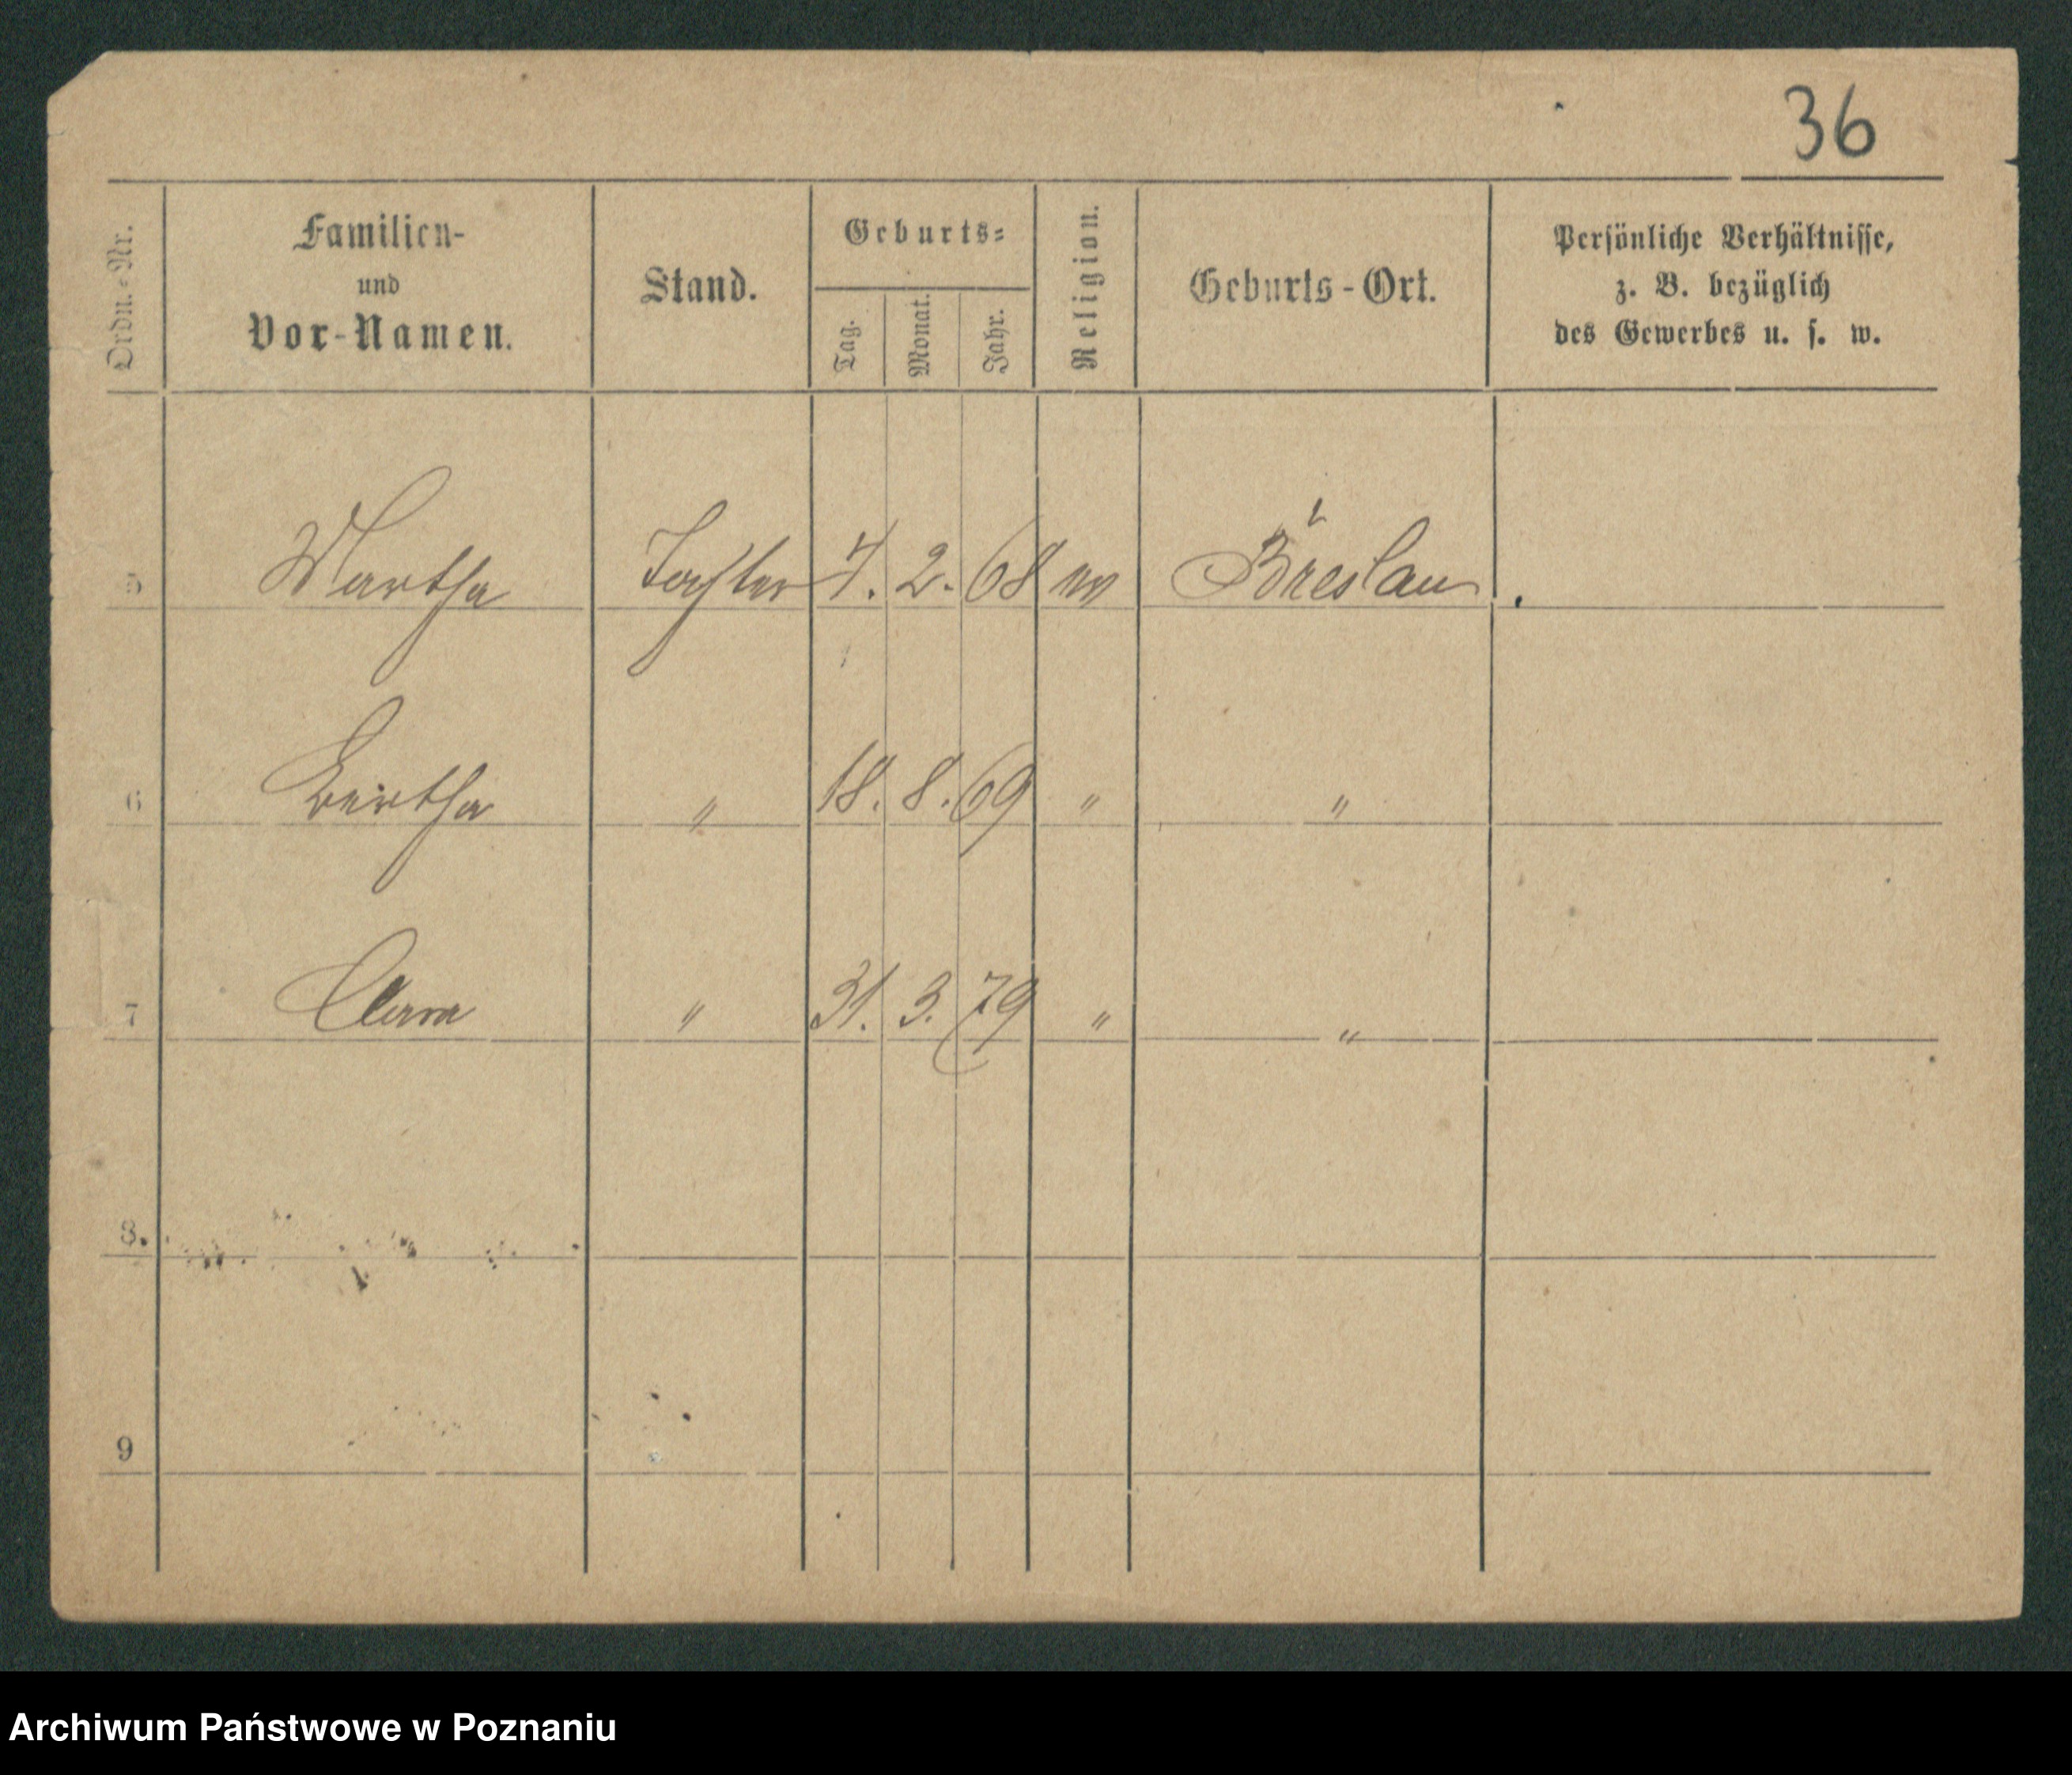 36
Ordn.-Nr.
Familien-
und
Vor-Namen.
Stand.
Geburts-
Tag.
Monat.
Jahr.
Religion.
Geburts-Ort.
Persönliche Verhältnisse,
z. B. bezüglich
des Gewerbes u. s. w.
5 Martha Tochter 7. 2. 68 ev Breslau
6 Bertha " 18. 8. 69 " "
7 Clara " 31. 3. 79 " "
8.
9
Archiwum Państwowe w Poznaniu